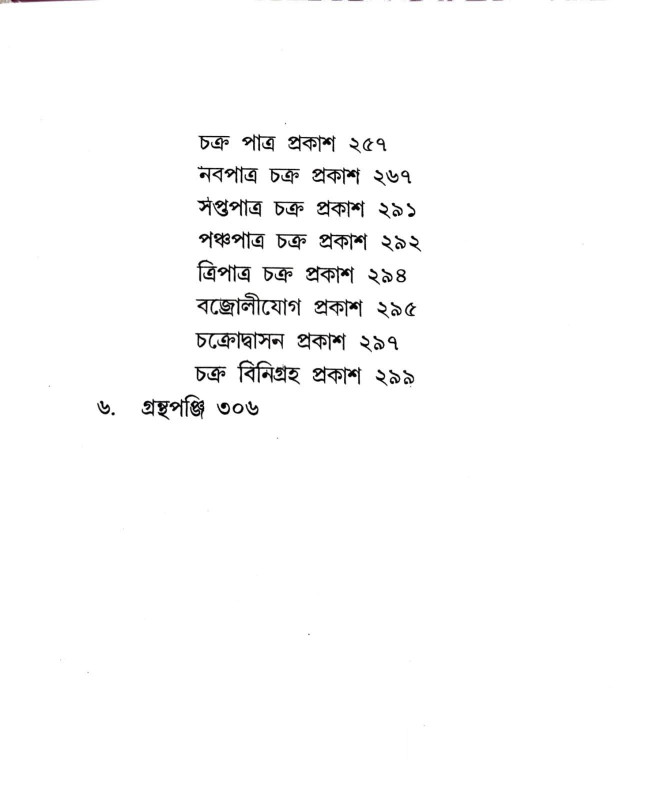 চক্র পাত্র প্রকাশ ২৫৭
নবপাত্র চক্র প্রকাশ ২৬৭
সপ্তপাত্র চক্র প্রকাশ ২৯১
পঞ্চপাত্র চক্র প্রকাশ ২৯২
ত্রিপাত্র চক্র প্রকাশ ২৯৪
বজ্রোলীযোগ প্রকাশ ২৯৫
চক্রোদ্বাসন প্রকাশ ২৯৭
চক্র বিনিগ্রহ প্রকাশ ২৯৯
৬. গ্রন্থপঞ্জি ৩০৬